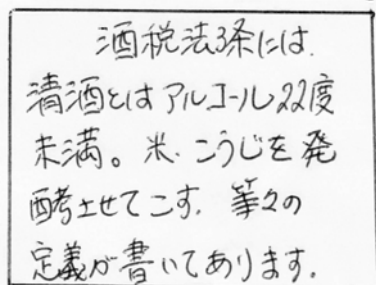 酒税法3条には、
清酒とはアルコール22度
未満。米、こうじを発
酵させてこす。等々の
定義が書いてあります。